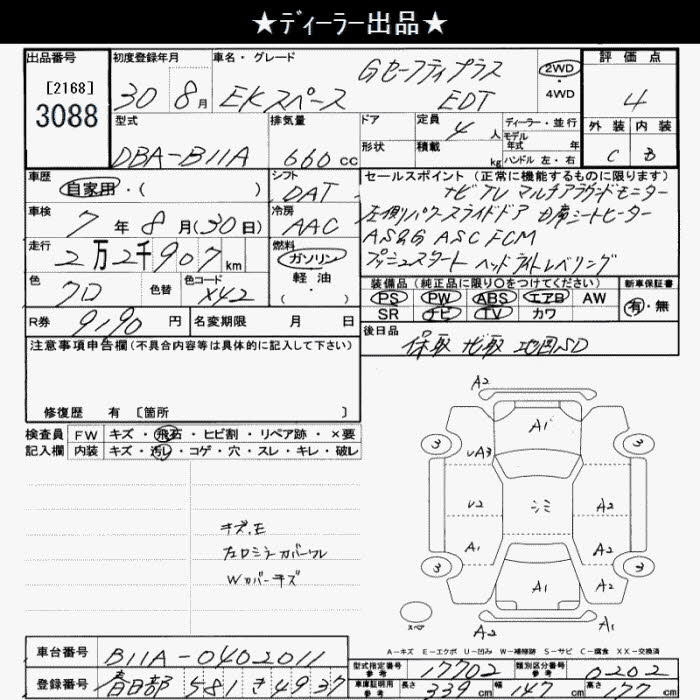 ★ディーラー出品★
出品番号 初度登録年月 車名・グレード 評価点
[2168] 3088 30 8月 EKスペース Gセーフティプラス EDT 2WD ・4WD 4
型式 排気量 ドア 定員 4人 ディーラー・並行 外装 内装
モデル年式 年
DBA-B11A 660cc 形状 積載 kg ハンドル 左・右 C B
車歴 自家用・( ) シフト DAT セールスポイント (正常に機能するものに限ります)
ナビ TV マルチアラウンドモニター
車検 7年8月(30日) 冷房 AAC 左側パワースライドドア 助席シートヒーター
ASG ASC FCM
走行 2万2千907km 燃料 ガソリン・軽油・( )
プッシュスタート ヘッドライトレベリング
色 クロ 色替 色コード X42
装備品 (純正品に限り○をつけてください) 新車保証書
PS PW ABS エアB AW 有・無
SR ナビ TV カワ
R券 9190円 名変期限 月 日
後日品 保取 ナビ取 地図SD
注意事項申告欄(不具合内容等は具体的に記入して下さい)
修復歴 有 [箇所 ]
検査員 FW キズ・飛石・ヒビ割・リペア跡・×要
記入欄 内装 キズ・汚レ・コゲ・穴・スレ・キレ・破レ
A2
A1
3 3
UA3
U2 シミ A2
キズ、モ
左ロミラーカバーワレ
Wカバーキズ
A1 A2
3 A1 A2 3
スペア A2 A1
A-キズ E-エクボ U-凹み W-補修跡 S-サビ C-腐食 XX-交換済
車台番号 B11A-0402011
型式指定番号 参考 17702 類別区分番号 参考 0202
登録番号 春日部 581 き 4937
車庫証明用 参考 長さ 339cm 幅 147cm 高さ 177cm